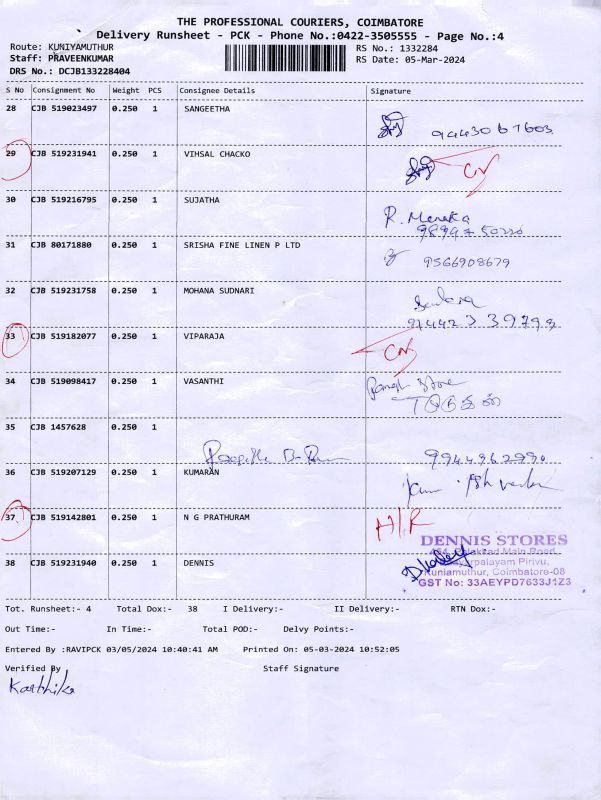 THE PROFESSIONAL COURIERS, COIMBATORE
Delivery Runsheet - PCK - Phone No.:0422-3505555 - Page No.:4
Route: KUNIYAMUTHUR RS No.: 1332284
Staff: PRAVEENKUMAR RS Date: 05-Mar-2024
DRS No.: DCJB133228404
S No Consignment No Weight PCS Consignee Details Signature
28 CJB 519023497 0.250 1 SANGEETHA
29 CJB 519231941 0.250 1 VIHSAL CHACKO CN
30 CJB 519216795 0.250 1 SUJATHA R. Menaka
31 CJB 80171880 0.250 1 SRISHA FINE LINEN P LTD
9566908679
32 CJB 519231758 0.250 1 MOHANA SUDNARI
33 CJB 519182077 0.250 1 VIPARAJA CN
34 CJB 519098417 0.250 1 VASANTHI Store
35 CJB 1457628 0.250 1
36 CJB 519207129 0.250 1 KUMARAN
37 CJB 519142801 0.250 1 N G PRATHURAM H/R
DENNIS STORES
Main Road
38 CJB 519231940 0.250 1 DENNIS Pirivu,
Kuniamuthur, Coimbatore-08
GST No: 33AEYPD7633J1Z3
Tot. Runsheet:- 4 Total Dox:- 38 I Delivery:- II Delivery:- RTN Dox:-
Out Time:- In Time:- Total POD:- Delvy Points:-
Entered By :RAVIPCK 03/05/2024 10:40:41 AM Printed On: 05-03-2024 10:52:05
Verified By Staff Signature
Karthika